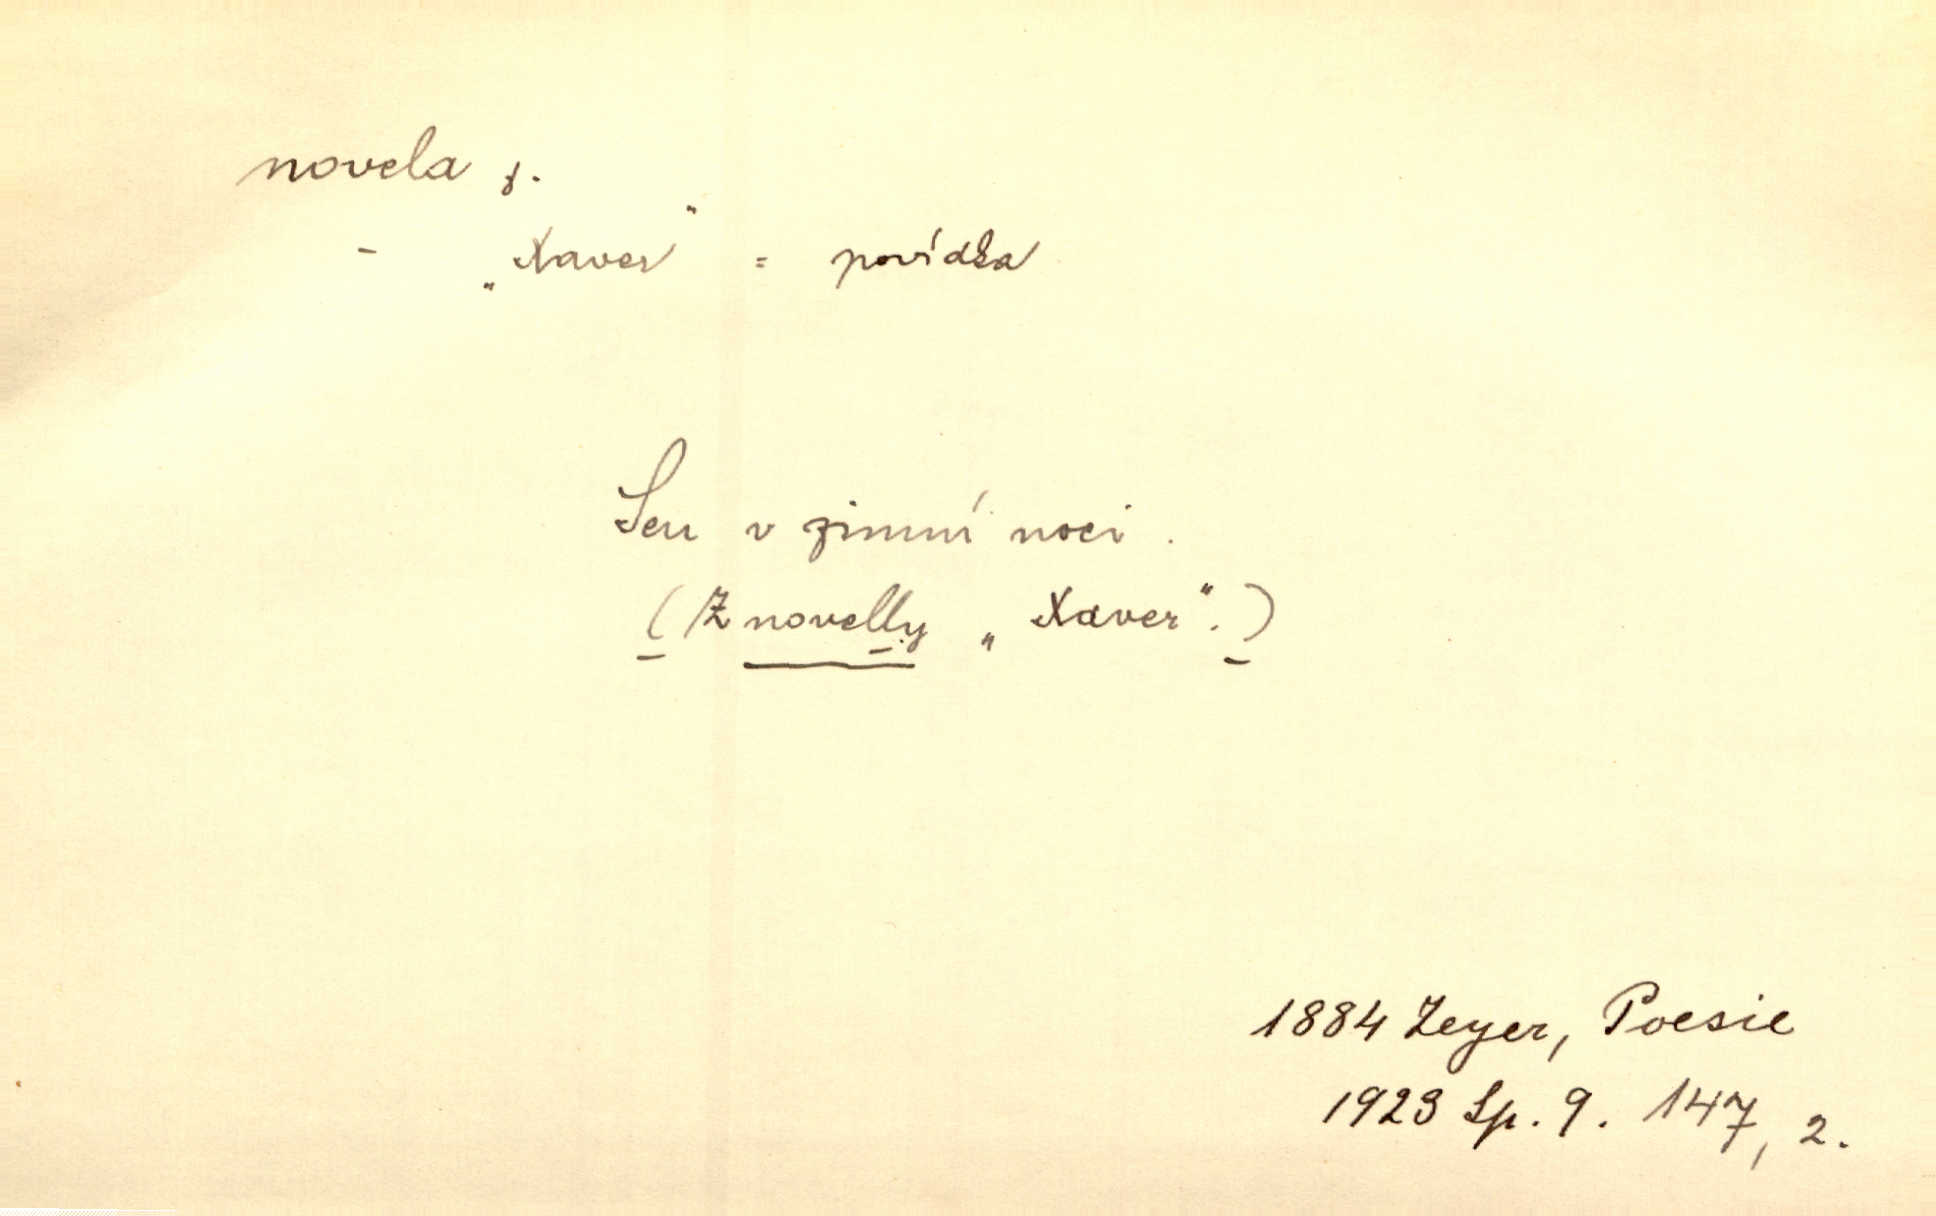 novela ž.
- „Xaver" = povídka
Sen v zimní noci.
(Z novelly „Xaver".)
1884 Zeyer, Poesie
1923 Sp. 9. 147, 2.